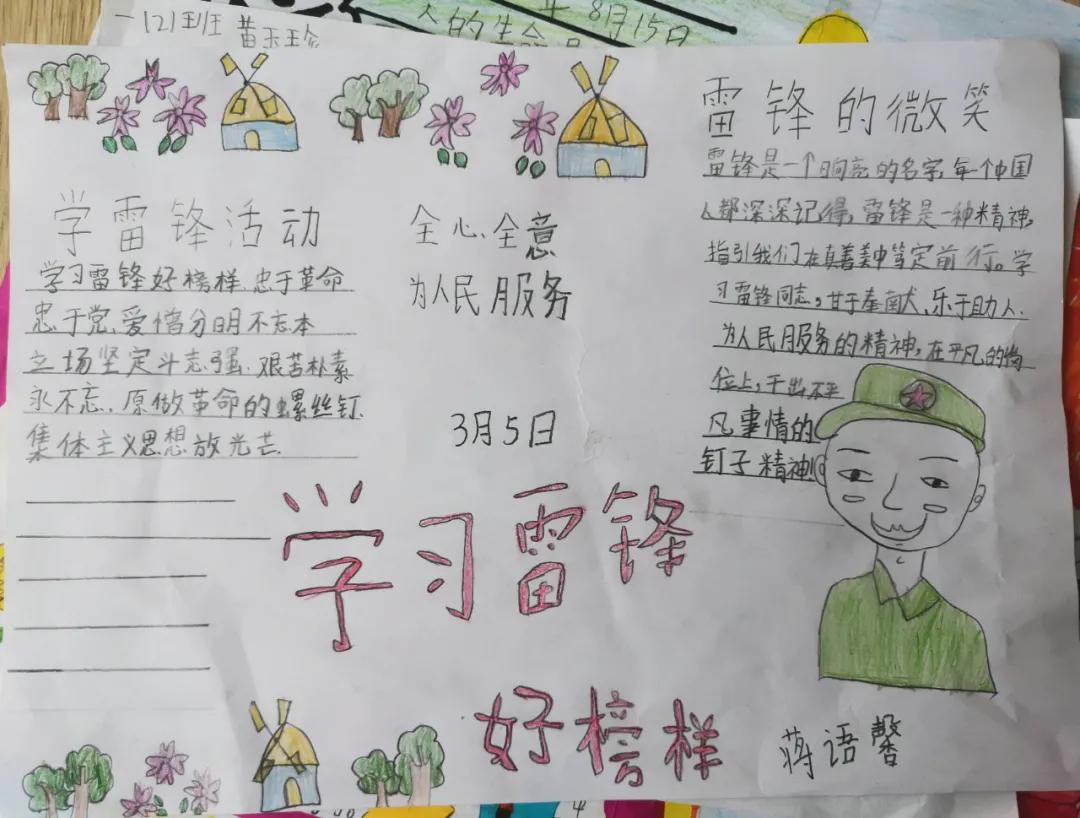 一(2)班 黄玉珍
8月15日
的生命
雷锋的微笑
雷锋是一个响亮的名字,每个中国
人都深深记得,雷锋是一种精神,
指引我们在真善美中笃定前行。学
习雷锋同志,甘于奉献,乐于助人.
为人民服务的精神,在平凡的岗
位上,干出不平
凡事情的
钉子精神!
学雷锋活动
学习雷锋好榜样.忠于革命
忠于党.爱憎分明不忘本
立场坚定斗志强.艰苦朴素
永不忘.原做革命的螺丝钉.
集体主义思想放光芒
全心全意
为人民服务
3月5日
学习雷锋
好榜样
蒋语馨